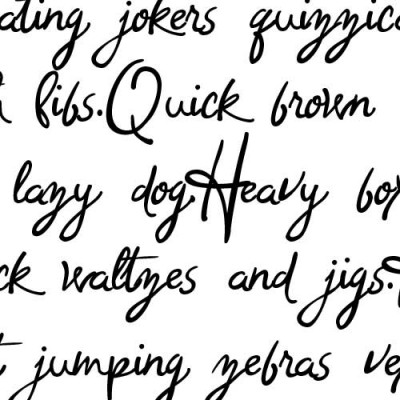 ating jokers quizzic
fibs.Quick brown
lazy dog.Heavy bo
ck waltzes and jigs.
jumping zebras ve